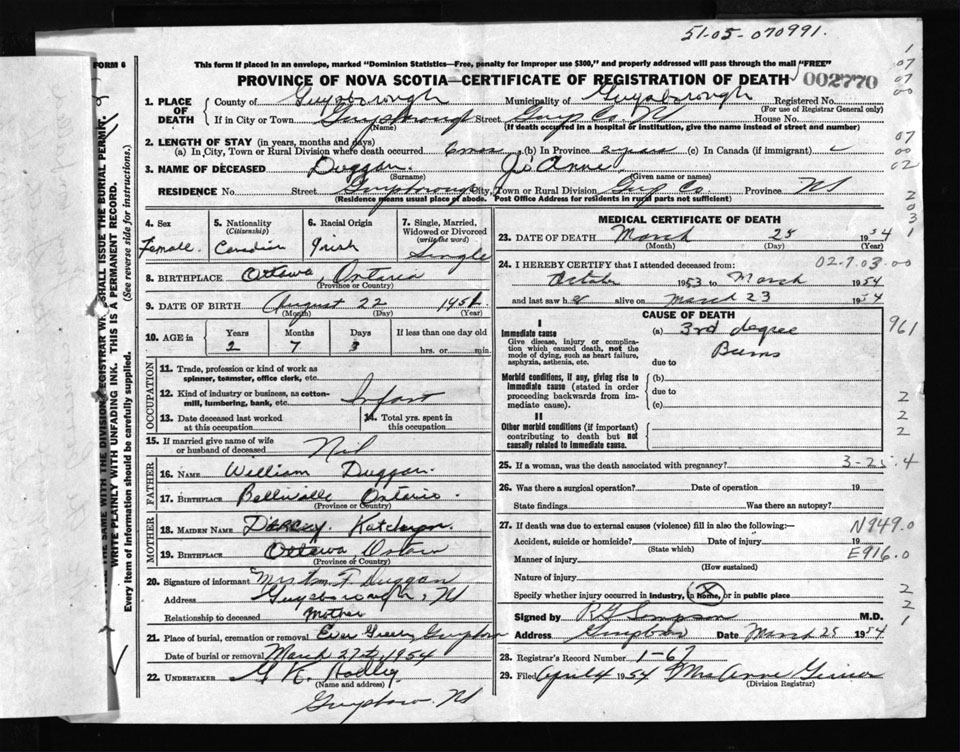 51-05-070991.
FORM 6
This form if placed in an envelope, marked "Dominion Statistics—Free, penalty for improper use $300," and properly addressed will pass through the mail "FREE"
PROVINCE OF NOVA SCOTIA—CERTIFICATE OF REGISTRATION OF DEATH 002770
1. PLACE OF DEATH County of Guysborough Municipality of Guysborough Registered No.
(For use of Registrar General only)
If in City or Town Guysborough Street Guys Co. NS House No.
(Name) (If death occurred in a hospital or institution, give the name instead of street and number)
2. LENGTH OF STAY (in years, months and days)
(a) In City, Town or Rural Division where death occurred 6 mos (b) In Province 2 years (c) In Canada (if immigrant)
3. NAME OF DECEASED Duggan. Jo Anne.
(Surname) (Given name or names)
RESIDENCE No. Street Guysborough City, Town or Rural Division Guy Co. Province NS
(Residence means usual place of abode. Post Office Address for residents in rural parts not sufficient)
4. Sex Female.
5. Nationality (Citizenship) Canadian
6. Racial Origin Irish
7. Single, Married, Widowed or Divorced (write the word) Single
8. BIRTHPLACE Ottawa, Ontario
(Province or Country)
9. DATE OF BIRTH August 22 1951
(Month) (Day) (Year)
10. AGE in Years Months Days If less than one day old
2 7 3 hrs. or min.
OCCUPATION
11. Trade, profession or kind of work as spinner, teamster, office clerk, etc.
12. Kind of industry or business, as cotton-mill, lumbering, bank, etc. Infant
13. Date deceased last worked at this occupation
14. Total yrs. spent in this occupation
15. If married give name of wife or husband of deceased Nil
FATHER
16. NAME William Duggan.
17. BIRTHPLACE Ontario.
(Province or Country)
MOTHER
18. MAIDEN NAME Darcey
19. BIRTHPLACE Ottawa
(Province of Country)
20. Signature of informant Mrs Wm. F. Duggan
Address Guysborough, NS
Relationship to deceased Mother
21. Place of burial, cremation or removal Ever Green
Date of burial or removal March 27th, 1954
22. UNDERTAKER G. K. Hadley
(Name and address)
NS
MEDICAL CERTIFICATE OF DEATH
23. DATE OF DEATH March 25 1954
(Month) (Day) (Year)
24. I HEREBY CERTIFY that I attended deceased from: 02-7.03.00
October 1953 to March 1954
and last saw h er alive on March 23 1954
CAUSE OF DEATH
I
Immediate cause
Give disease, injury or complication which caused death, not the mode of dying, such as heart failure, asphyxia, asthenia, etc.
(a) 3rd degree 961
Burns
due to
Morbid conditions, if any, giving rise to immediate cause (stated in order proceeding backwards from immediate cause).
(b)
due to
(c)
II
Other morbid conditions (if important) contributing to death but not causally related to immediate cause.
25. If a woman, was the death associated with pregnancy?
26. Was there a surgical operation? Date of operation 19
State findings Was there an autopsy?
27. If death was due to external causes (violence) fill in also the following:— N949.0
Accident, suicide or homicide? Date of injury 19
(State which) E916.0
Manner of injury
(How sustained)
Nature of injury
Specify whether injury occurred in industry, in home, or in public place
Signed by M.D.
Address Date March 25 1954
28. Registrar's Record Number 1-67
29. Filed April 4 1954 Mrs Anne
(Division Registrar)
WRITE PLAINLY WITH UNFADING INK. THIS IS A PERMANENT RECORD.
Every item of information should be carefully supplied. (See reverse side for instructions.)